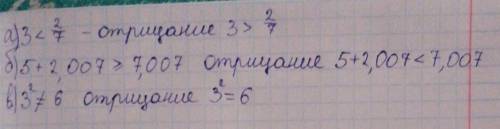 а) 3 < 2/7 - отрицание 3 > 2/7
б) 5 + 2,007 > 7,007 отрицание 5 + 2,007 < 7,007
в) 3² ≠ 6 отрицание 3² = 6